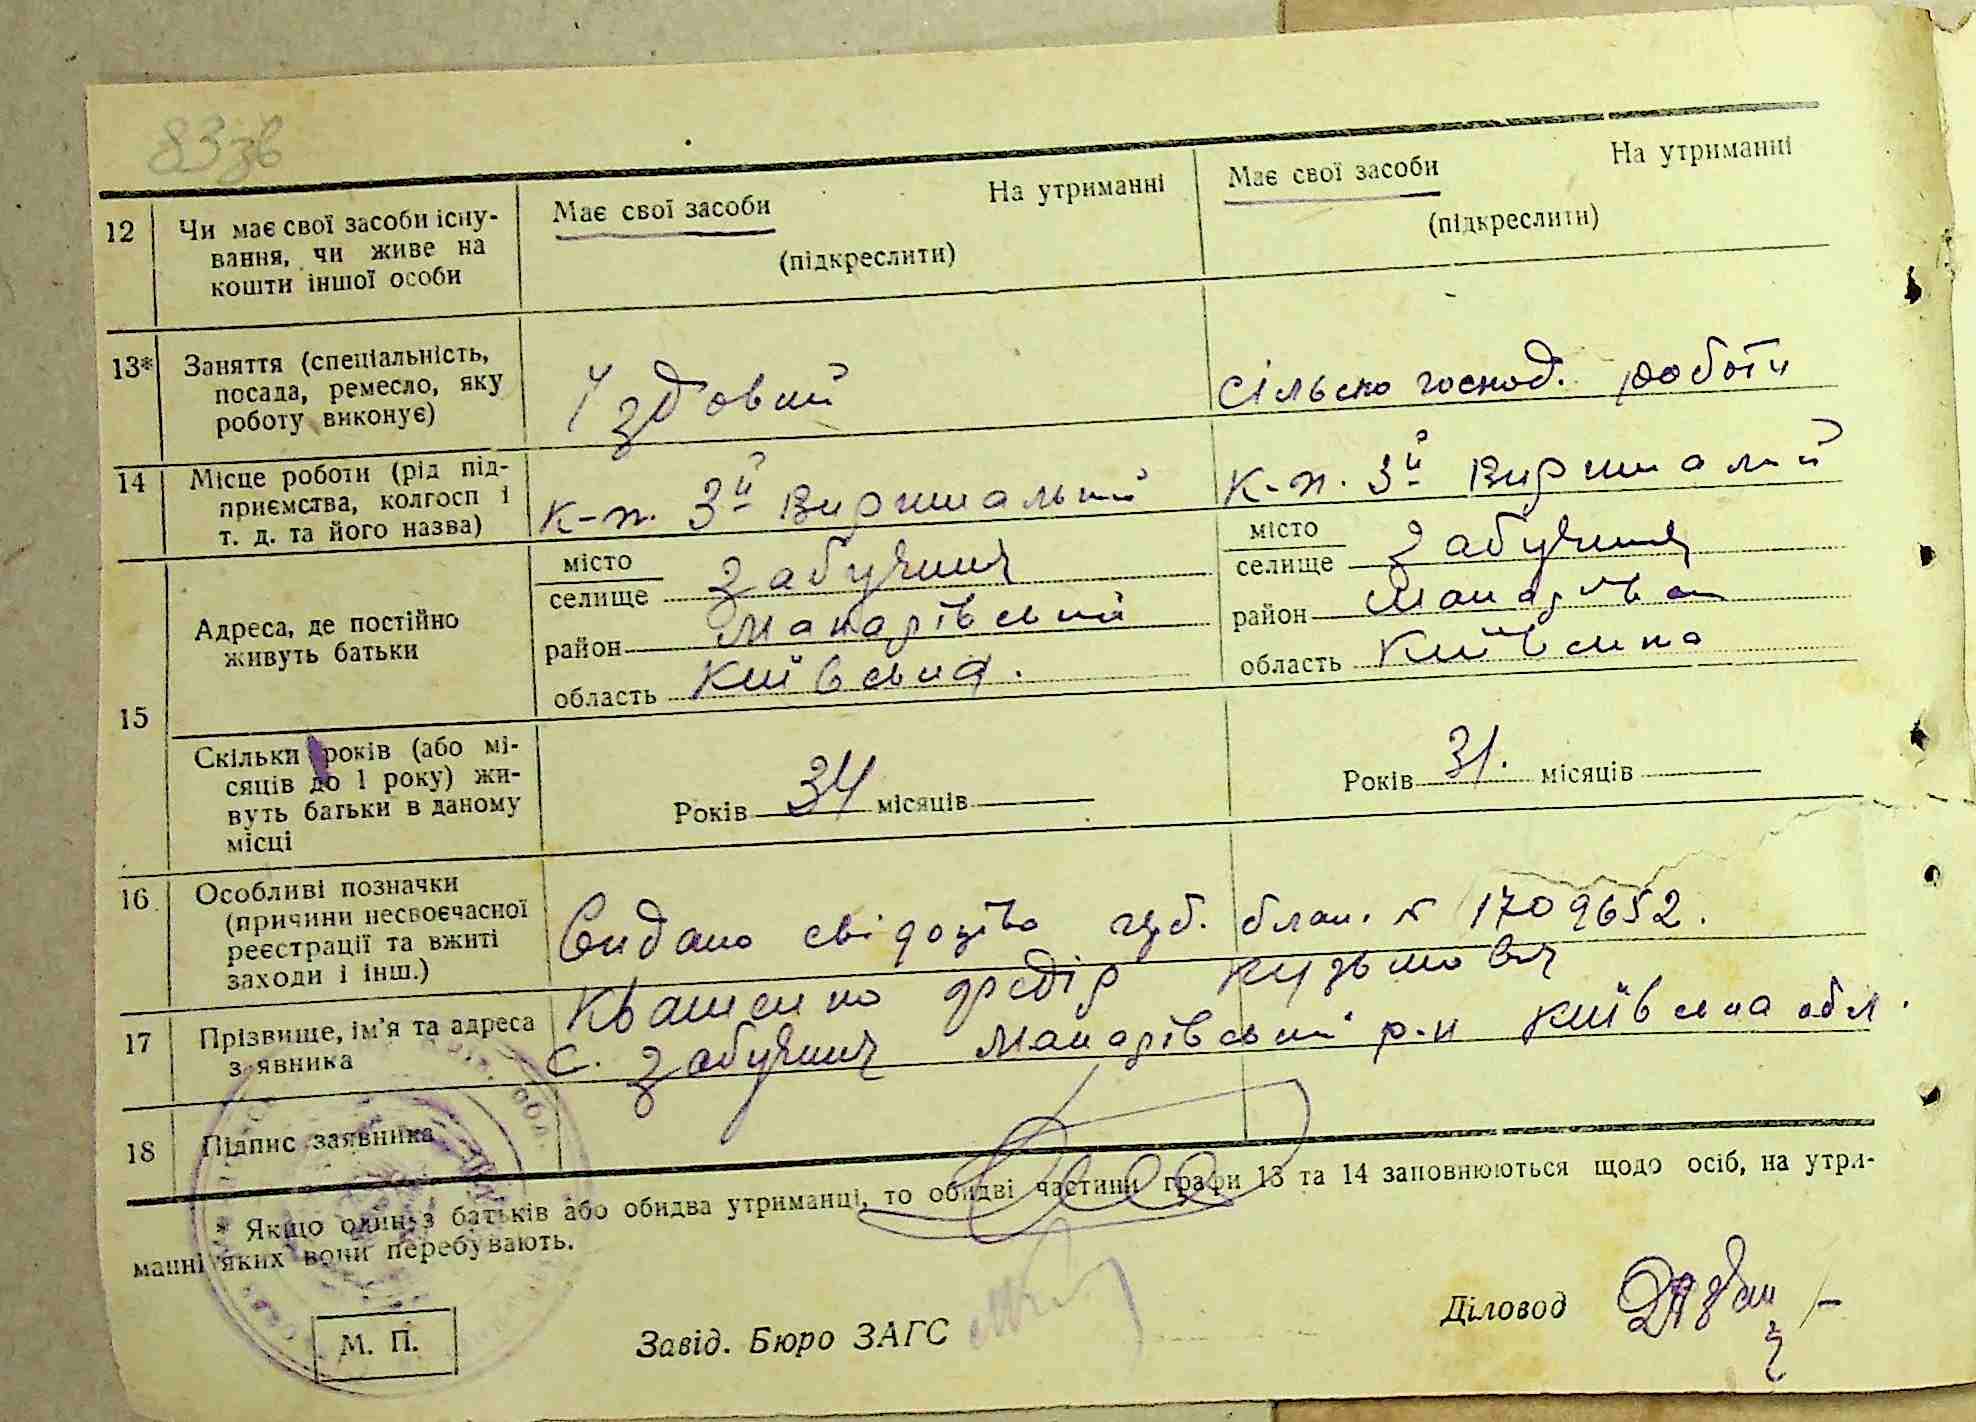 83зв
12 Чи має свої засоби існу-
вання, чи живе на
кошти іншої особи
Має свої засоби На утриманні
(підкреслити)
Має свої засоби На утриманні
(підкреслити)
13* Заняття (спеціальність,
посада, ремесло, яку
роботу виконує)
Їздовий
Сільсько господ. роботи
14 Місце роботи (рід під-
приємства, колгосп і
т. д. та його назва)
к-п. 3й Вирішальний
к-п. 3й Вирішалий
15 Адреса, де постійно
живуть батьки
місто
селище Забуяння
район Макарівський
область Київська.
місто
селище Забуяння
район Макарівськ
область Київська
Скільки років (або мі-
сяців до 1 року) жи-
вуть батьки в даному
місці
Років 34 місяців
Років 31. місяців
16 Особливі позначки
(причини несвоєчасної
реєстрації та вжиті
заходи і інш.)
Видано свідоцтво герб. блан. № 1709652.
17 Прізвище, ім'я та адреса
заявника
Квашенко Федір Кузьмович
с. Забуяння Макарівський р-н Київська обл.
18 Підпис заявника
* Якщо один з батьків або обидва утриманці, то обидві частини графи 13 та 14 заповнюються щодо осіб, на утри-
манні яких вони перебувають.
М. П.
Завід. Бюро ЗАГС
Діловод